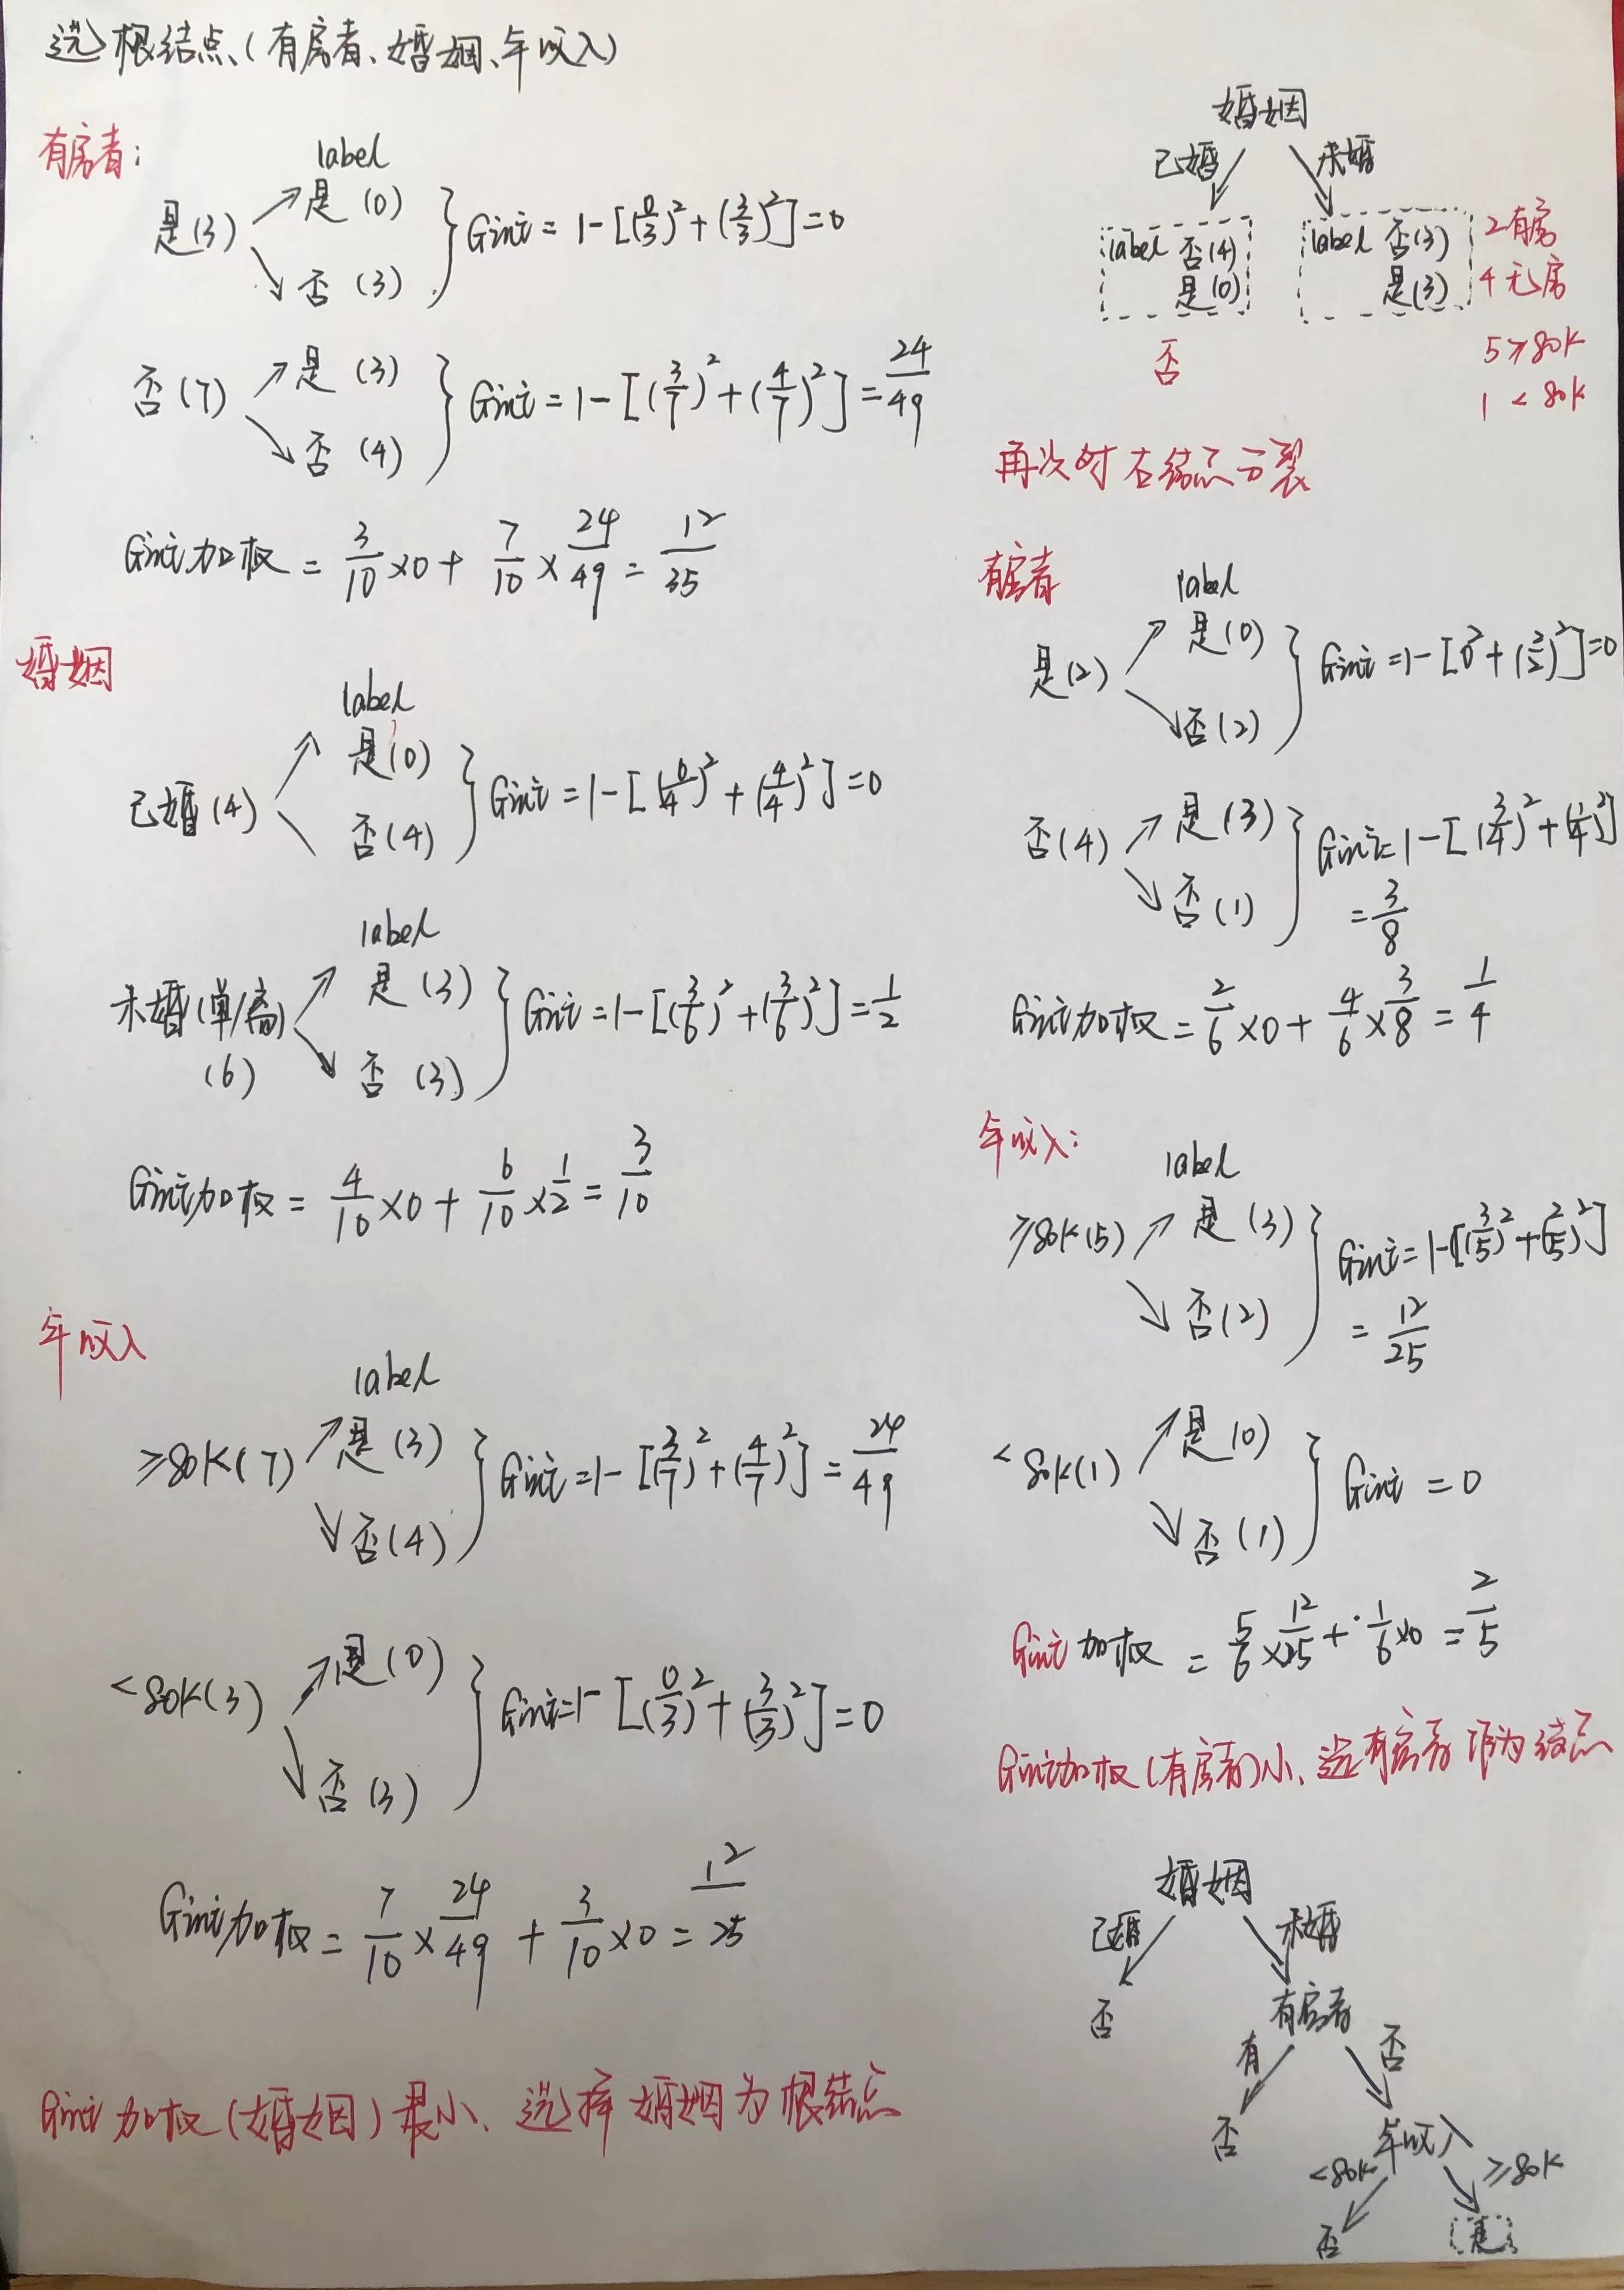 选根结点、(有房者、婚姻、年收入)
有房者:
label
是(3) ↗是 (0)
↘否 (3)
Gini = 1-[(0/3)²+(3/3)²]=0
否(7) ↗是 (3)
↘否 (4)
Gini = 1-[(3/7)²+(4/7)²]=24/49
Gini加权 = 3/10×0+ 7/10×24/49 = 12/35
婚姻
label
已婚(4) 是(0)
否(4)
Gini = 1-[(0/4)²+(4/4)²]=0
label
未婚(单/离) ↗是 (3)
(6) ↘否 (3)
Gini = 1-[(3/6)²+(3/6)²]=1/2
Gini加权 = 4/10×0+ 6/10×1/2 = 3/10
年收入
label
≥80K(7) ↗是(3)
↘否(4)
Gini=1-[(3/7)²+(4/7)²]=24/49
<80K(3) ↗是(0)
↘否(3)
Gini=1-[(0/3)²+(3/3)²]=0
Gini加权 = 7/10×24/49 + 3/10×0 = 12/25
Gini加权(婚姻)最小、选择婚姻为根结点
婚姻
已婚 未婚
label 否(4)
是(0)
否
label 否(3)
是(3)
2有房
4无房
5≥80K
1<80K
再次对右结点分裂
有房者
label
是(2) ↗是(0)
↘否(2)
Gini=1-[0²+(2/2)²]=0
否(4) ↗是(3)
↘否(1)
Gini=1-[(3/4)²+(1/4)²]
=3/8
Gini加权=2/6×0+4/6×3/8=1/4
年收入:
label
≥80K(5) ↗是(3)
↘否(2)
Gini=1-[(3/5)²+(2/5)²]
=12/25
<80K(1) ↗是(0)
↘否(1)
Gini=0
Gini加权 = 5/6×12/25+1/6×0=2/5
Gini加权(有房者)小、选有房者作为结点
婚姻
已婚 未婚
否 有房者
有 否
否 年收入
<80K ≥80K
否 是